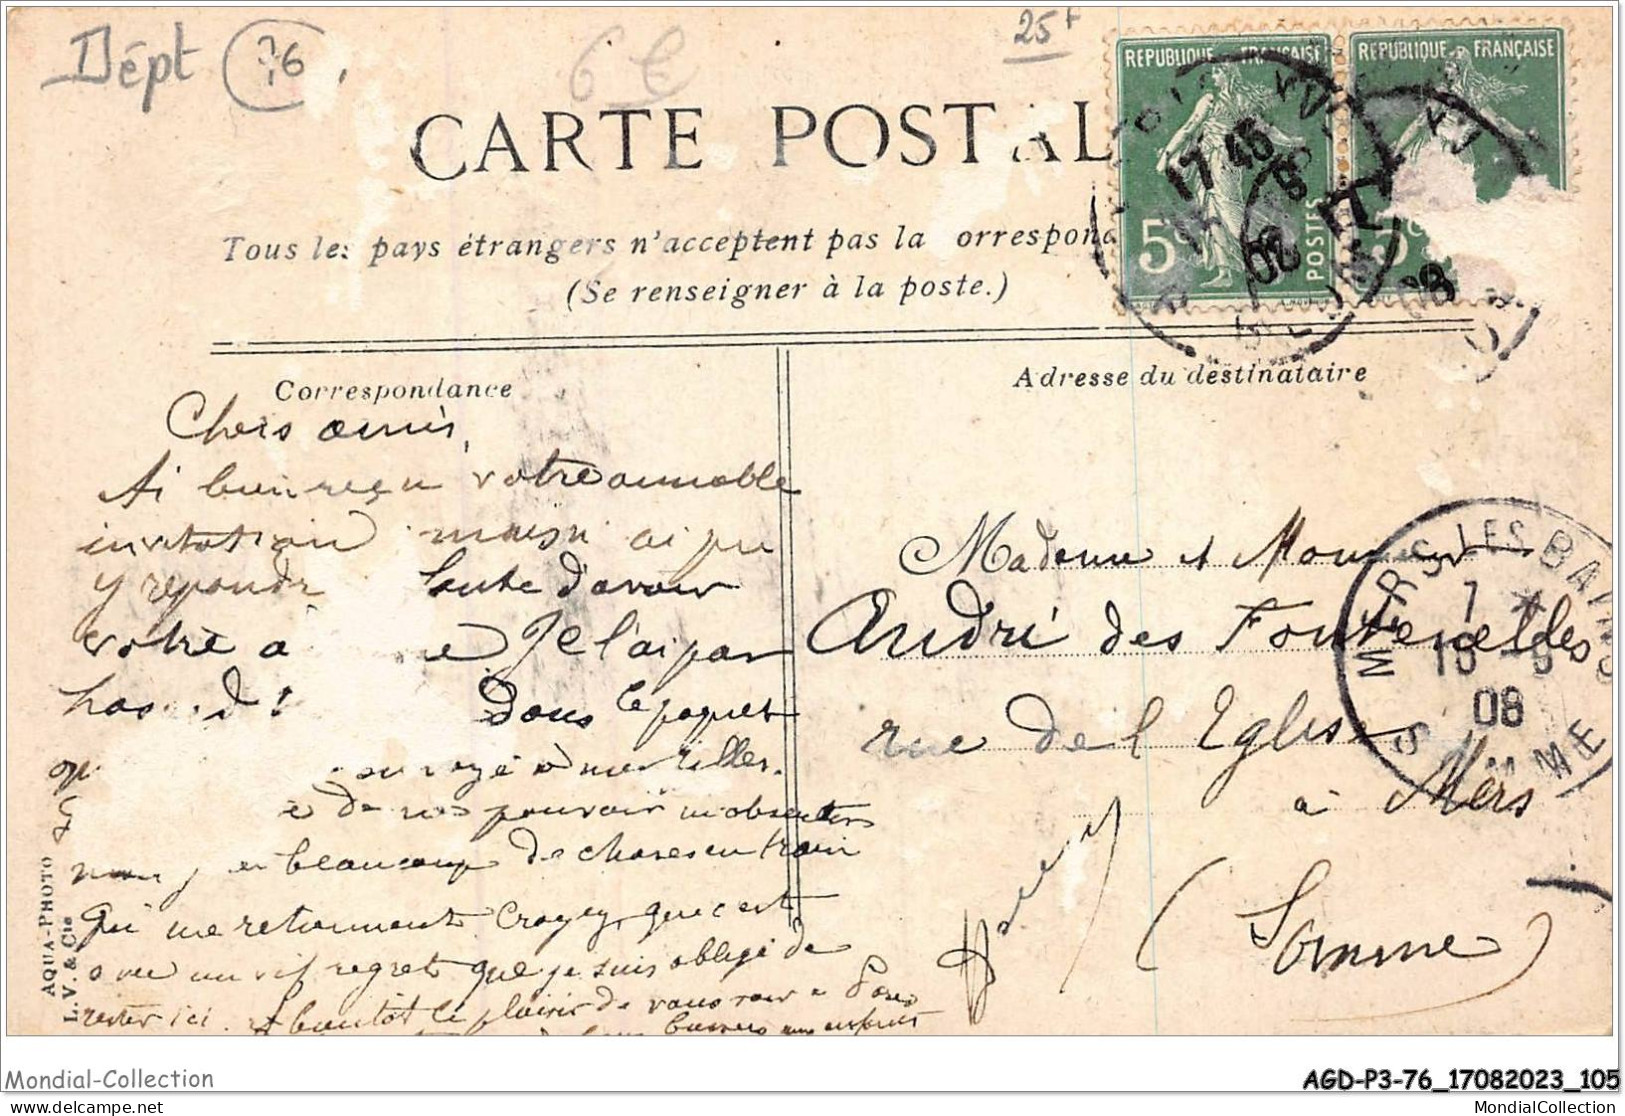 Dépt 76.
6 €
25f
RÉPUBLIQUE FRANÇAISE
RÉPUBLIQUE FRANÇAISE
5c POSTES
5c
17 45
08
CARTE POSTAL
Tous les pays étrangers n'acceptent pas la orrespon
(Se renseigner à la poste.)
Correspondance
Adresse du destinataire
Chers amis,
Ai bien reçu votre aimable
invitation mais n ai pu
y répondr faute d'avoir
votre a e Je l'ai par
has d Dans le paquet
envoyé à mes filles.
e de ne pouvoir m'absenter
beaucoup de choses en train
qui me retiennent Croyez, que c'est
avec un vif regret que je suis obligé de
rester ici. A bientôt le plaisir de vous voir à Paris
enfants
Madame et Monsieur
André des Fontenelles
rue de l'Eglise
à Mers
(Somme)
MERS-LES-BAINS
7 *
08
SOMME
AQUA-PHOTO
L. V. & Cie
Mondial-Collection
AGD-P3-76_17082023_105
mondial-collection.delcampe.net
MondialCollection